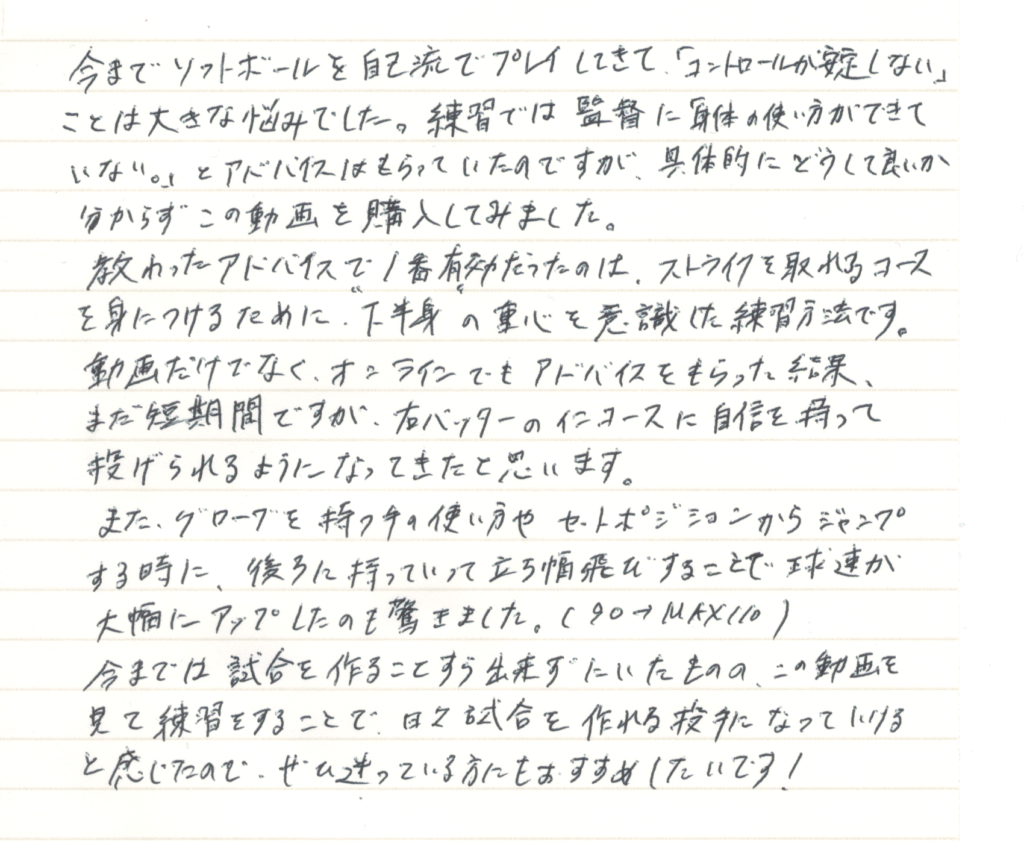 今までソフトボールを自己流でプレイしてきて、「コントロールが安定しない」
ことは大きな悩みでした。練習では監督に「身体の使い方ができて
いない。」とアドバイスはもらっていたのですが、具体的にどうして良いか
分からずこの動画を購入してみました。
教わったアドバイスで1番有効だったのは、ストライクを取れるコース
を身につけるために、“下半身”の重心を意識した練習方法です。
動画だけでなく、オンラインでもアドバイスをもらった結果、
まだ短期間ですが、右バッターのインコースに自信を持って
投げられるようになってきたと思います。
また、グローブを持つ手の使い方やセットポジションからジャンプ
する時に、後ろに持っていって立ち幅飛びすることで球速が
大幅にアップしたのも驚きました。(90→MAX110)
今までは試合を作ることすら出来ずにいたものの、この動画を
見て練習をすることで、日々試合を作れる投手になっていける
と感じたので、ぜひ迷っている方にもおすすめしたいです!